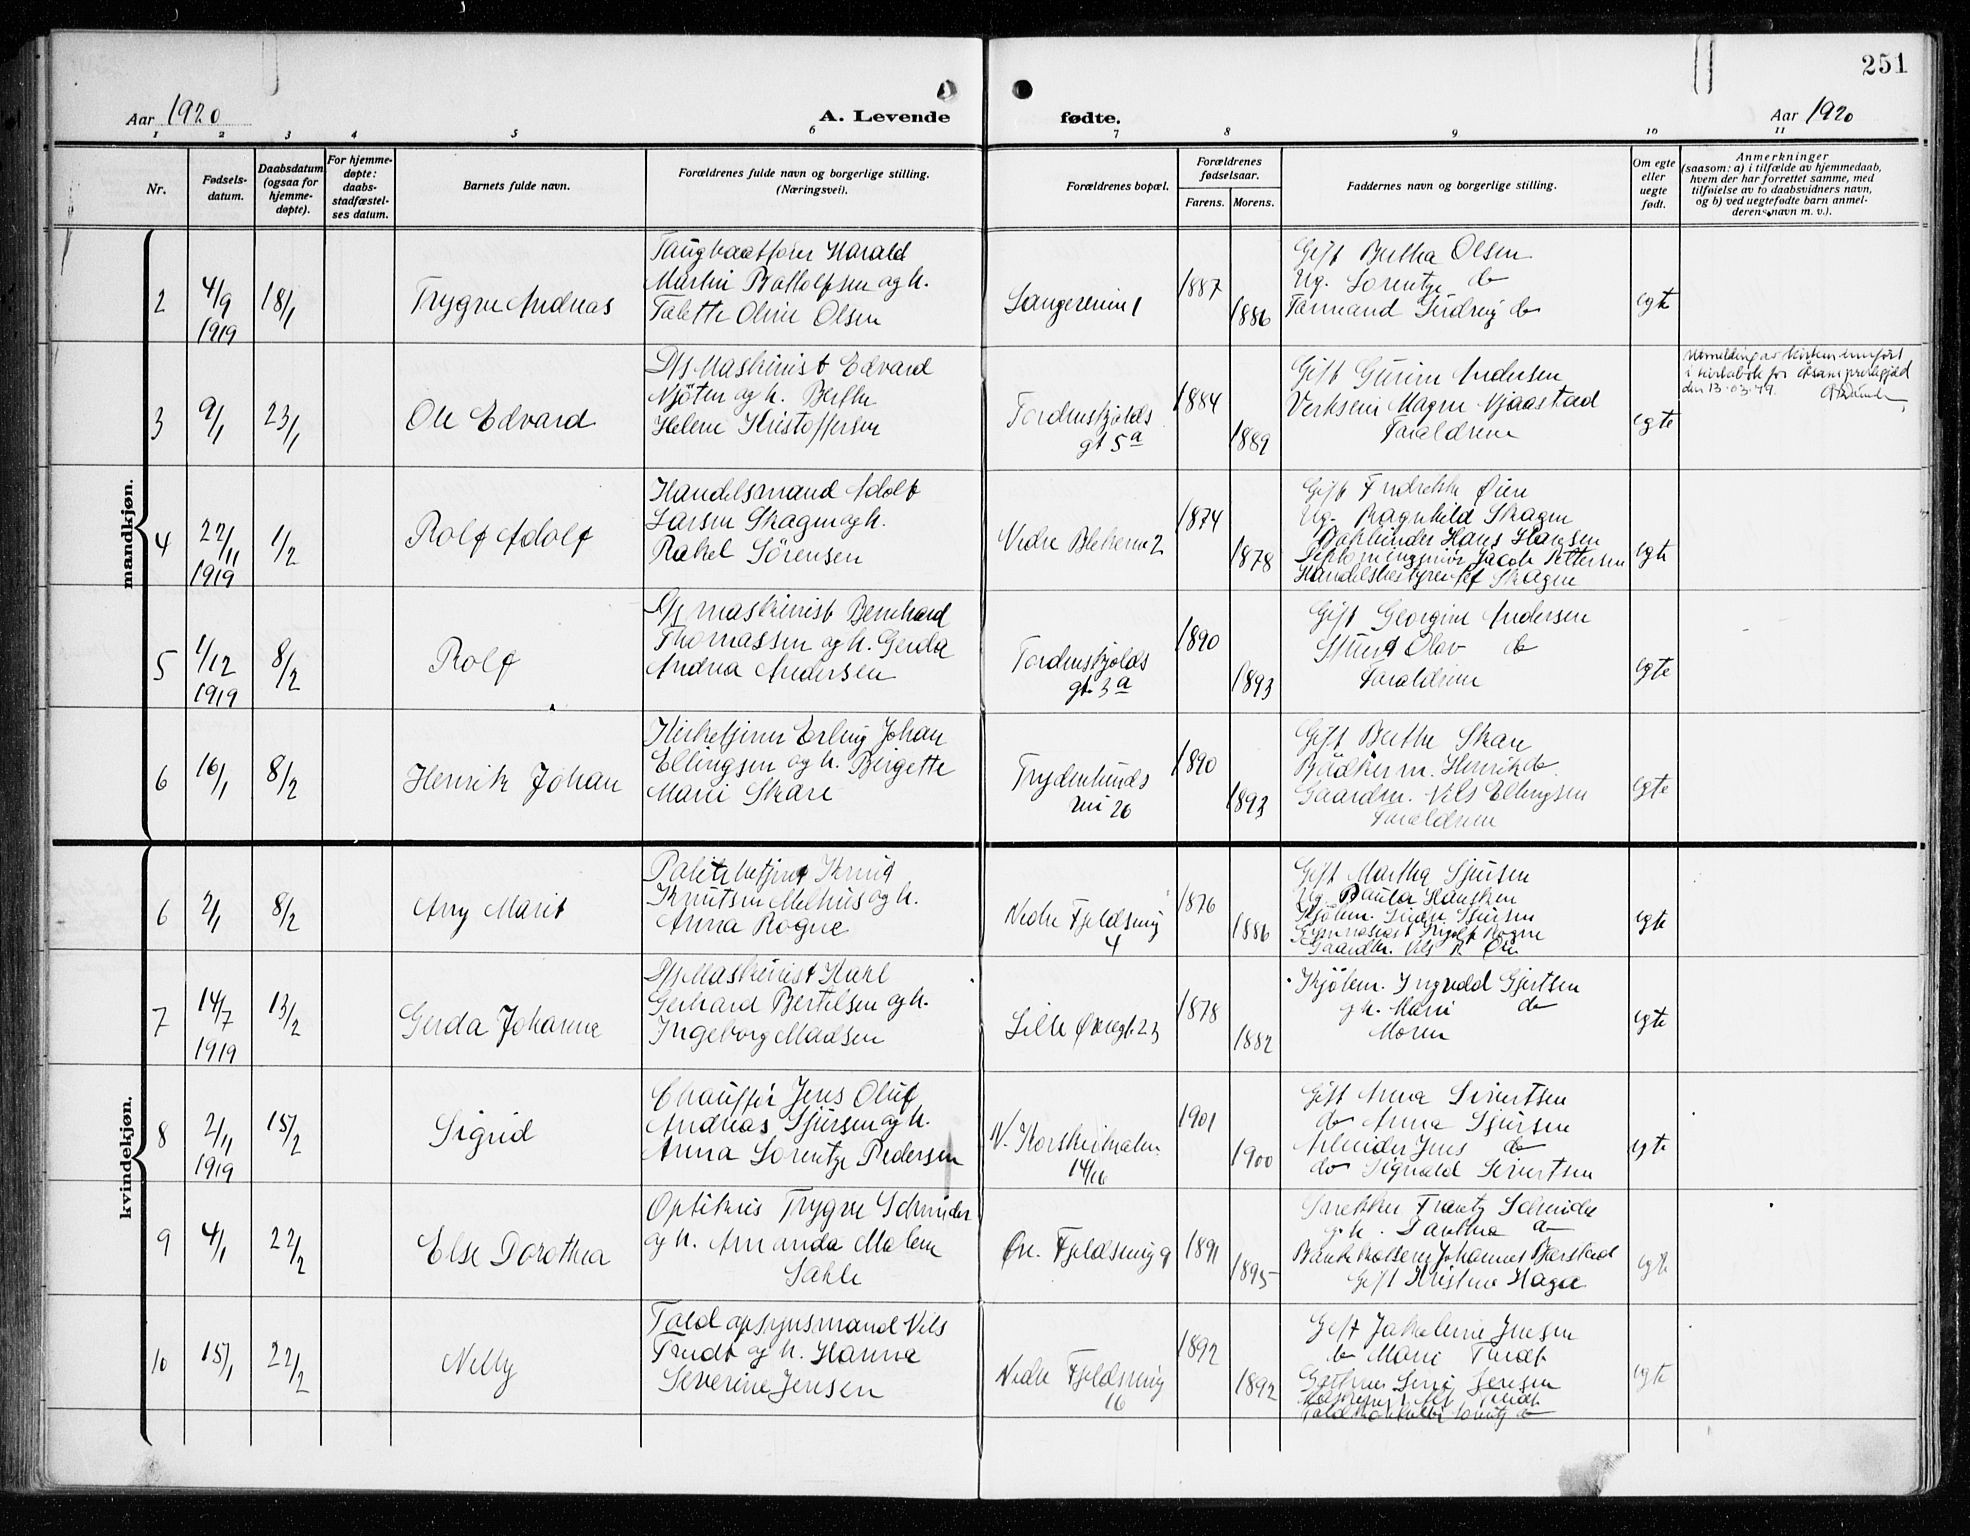 251
Aar 1920
A. Levende
fødte.
Aar 1920
1 2 3 4 5 6 7 8 9 10 11
Nr.
Fødsels-
datum.
Daabsdatum
(ogsaa for
hjemme-
døpte).
For hjemme-
døpte:
daabs-
stadfæstel-
ses datum.
Barnets fulde navn.
Forældrenes fulde navn og borgerlige stilling.
(Næringsvei).
Forældrenes bopæl.
Forældrenes
fødselsaar.
Farens. Morens.
Faddernes navn og borgerlige stilling.
Om egte
eller
uegte
født.
Anmerkninger
(saasom: a) i tilfælde av hjemmedaab,
hvem der har forrettet samme, med
tilføielse av to daabsvidners navn,
og b) ved uegtefødte barn anmel-
derens navn m. v.).
mandkjøn.
2
4/9
1919
18/1
Trygve Andreas
Taugbaatfører Harald
Martin Battolfsen og h.
Talette Oline Olsen
1887
1886
Gift Bertha Olsen
Ug. Lorentze do
egte
3
9/1
23/1
Ole Edvard
D/s Maskinist Edvard
Njøten og h. Berthe
Helene Kristoffersen
Tordenskjolds
gt 5a
1884
1889
Gift Gurine Andersen
Magne Njaastad
Forældrene
egte
den 13-03-79.
4
22/11
1919
1/2
Rolf Adolf
Handelsmand Adolf
Larsen Skagen og h.
Rakel Sørensen
Nedre Blekevei 2
1874
1878
Gift Fredrikke Øien
Ug. Ragnhild Skagen
Bokbinder Hans Hansen
Jacob Pettersen
Handelsbestyrer Skagen
egte
5
1/12
1919
8/2
Rolf
D/s maskinist Bernhard
Thomassen og h. Gerda
Andrea Andersen
Tordenskjolds
gt. 3a
1890
1893
Gift Georgine Andersen
Olav do
Forældrene
egte
6
16/1
8/2
Henrik Johan
Kirketjener Erling Johan
Ellingsen og h. Bergette
Marie Skare
Frydenlunds
vei 20
1890
1893
Gift Berthe Skare
Bødkerm. Henrik do.
Gaardbr. Nils Ellingsen
Forældrene
egte
kvindekjøn.
6
2/1
8/2
Any Marit
Politibetjent Knut
Knutsen Melhus og h.
Anna Rogne
Nedre Fjeldsmug
4
1876
1886
Gift Martha Sjursen
Ug. Paula Hansken
Kjøbm. Sjursen
Gymnasiast Rogne
Gaardbr. Nils K
egte
7
14/7
1919
13/2
Gerda Johanne
D/s Maskinist Karl
Gerhard Bertelsen og h.
Ingeborg Madsen
Lille Øvregt. 23
1878
1882
Kjøbm. Ingvald Gjertsen
og h. Marie do
Moren
egte
8
2/11
1919
15/2
Sigrid
Chauffør Jens Oluf
Andreas Sjursen og h.
Anna Lorentze Pedersen
N. Korskirkealm.
14/16
1901
1900
Gift Anna Sivertsen
do Anna Sjursen
Arbeider Jens do
do Sigvald Sivertsen
egte
9
4/1
22/2
Else Dorothea
Optikus Trygve Schnider
og h. Amanda Malene
Sahle
Øv. Fjeldsmug 9
1891
1895
Snekker Frantz Schnider
og h. Dorthea do
Johannes Bjerstad
Gift Kristine Hage
egte
10
15/1
22/2
Nelly
Toldopsynsmand Nils
Tindt og h. Hanna
Severine Jensen
Nedre Fjeldsmug
16
1892
1892
Gift Jakobine Jensen
do Marie Tindt
Jensen
Tindt
egte